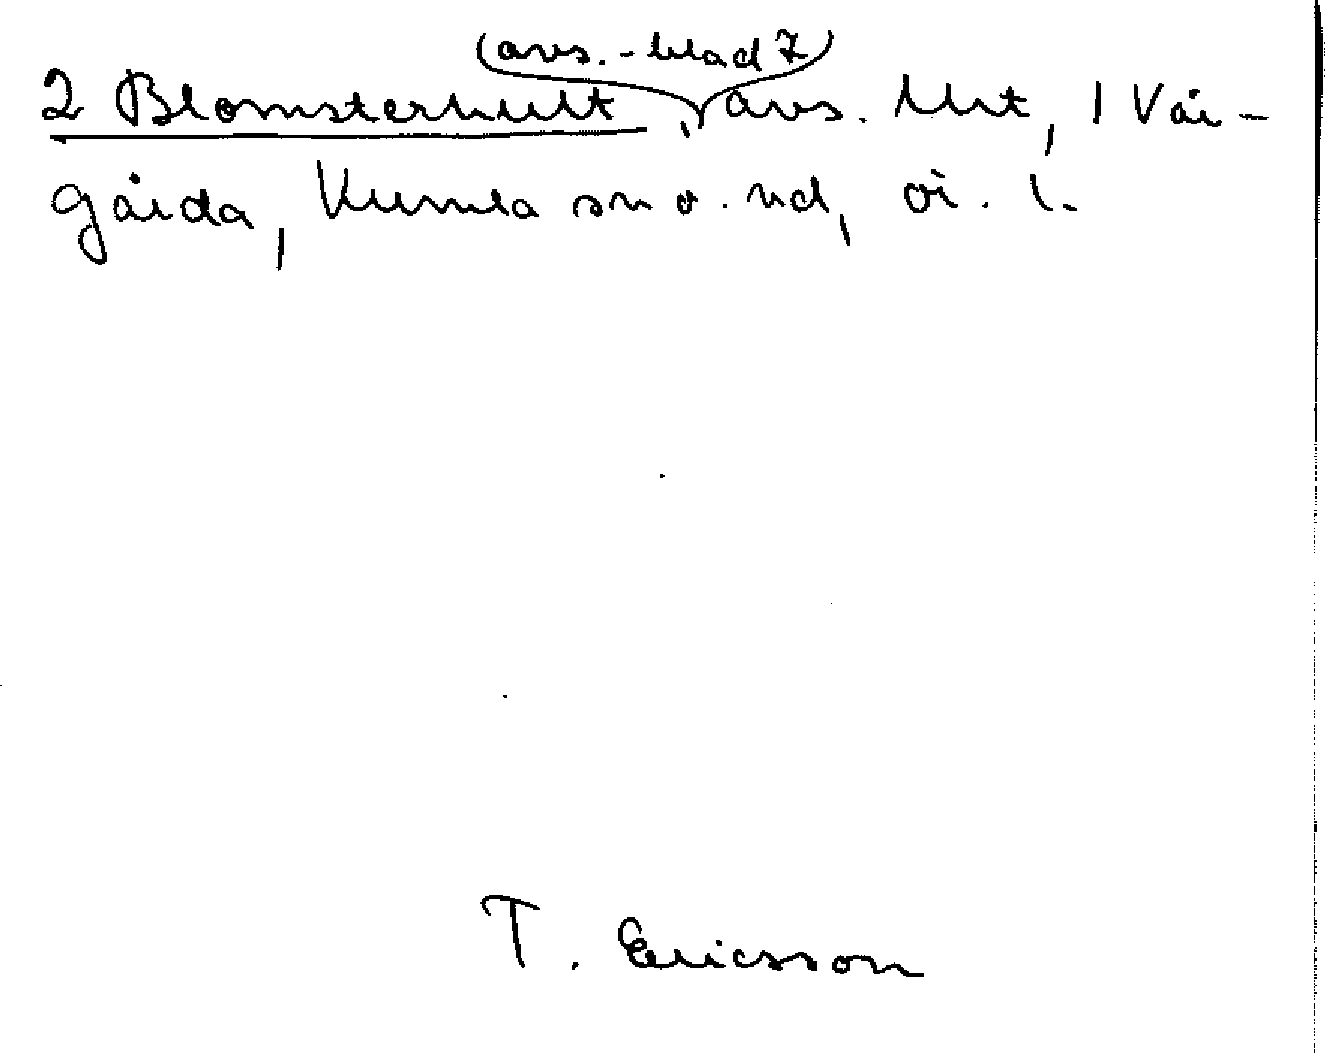 (avs.-blad 7)
2 Blomsterhult, avs. Urt, 1 Vår-
gårda, Kumla sn o. hd, ör. l.
T. Ericsson